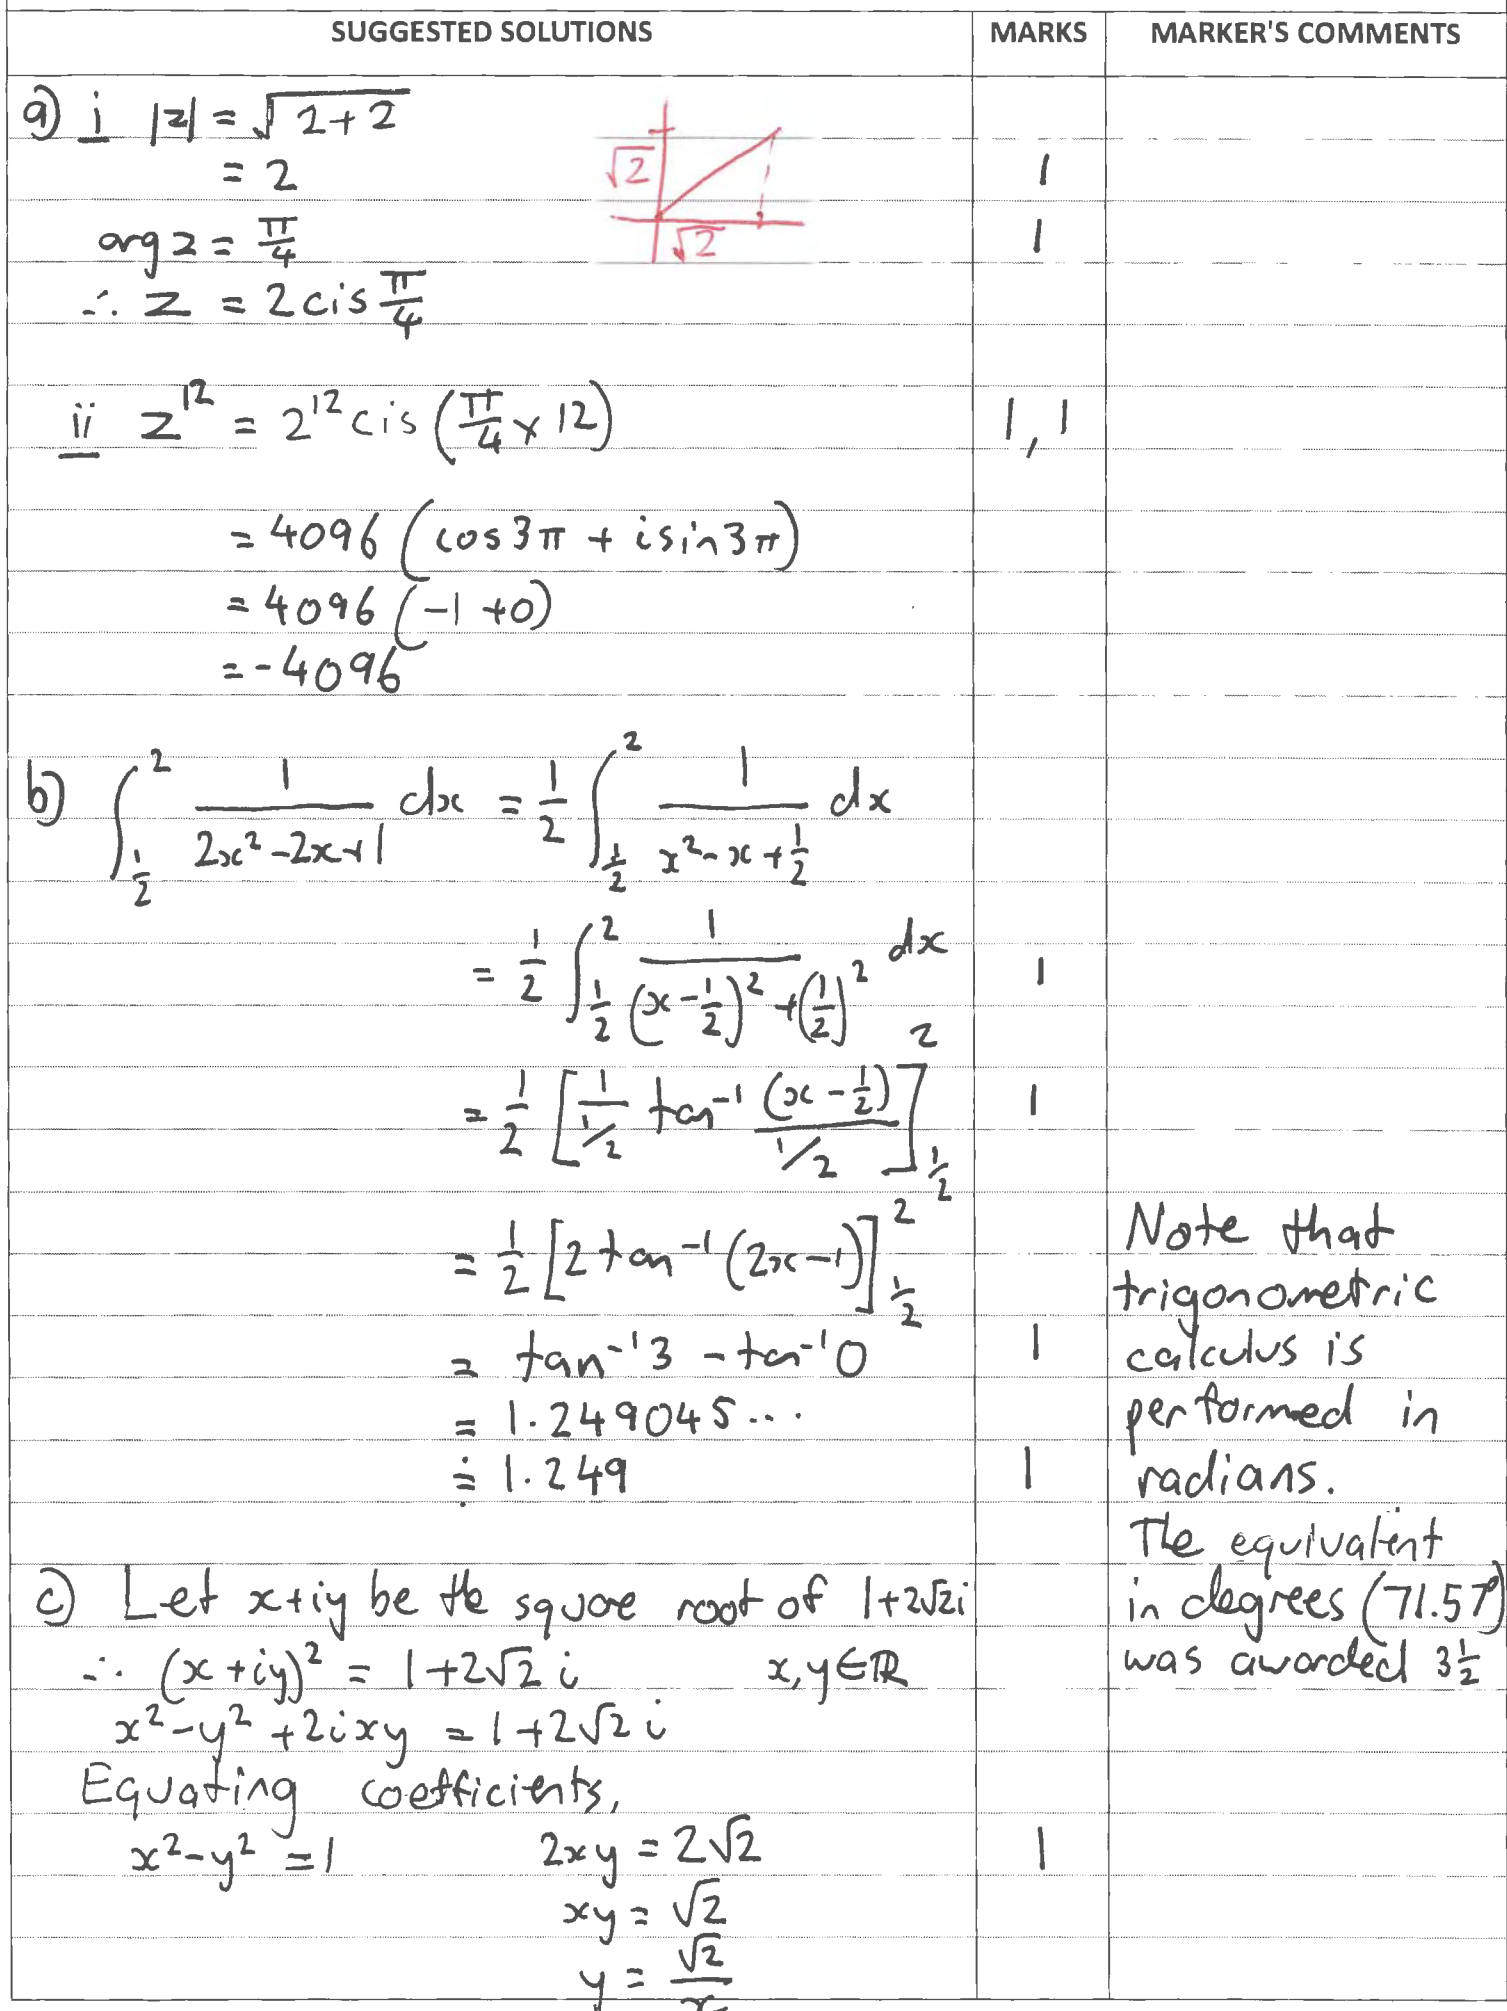 SUGGESTED SOLUTIONS MARKS MARKER'S COMMENTS
a) i |z| = √(2+2)
= 2 1
√2
√2
arg z = π/4 1
∴ z = 2cis π/4
ii z^12 = 2^12 cis (π/4 × 12) 1, 1
= 4096 (cos3π + isin3π)
= 4096 (-1 +0)
= -4096
b) ∫_{1/2}^{2} 1/(2x²-2x+1) dx = 1/2 ∫_{1/2}^{2} 1/(x²-x+1/2) dx
= 1/2 ∫_{1/2}^{2} 1/((x-1/2)²+(1/2)²) dx 1
= 1/2 [1/(1/2) tan⁻¹ (x-1/2)/(1/2)]_{1/2}^{2} 1
= 1/2 [2tan⁻¹(2x-1)]_{1/2}^{2}
= tan⁻¹3 - tan⁻¹0 1
= 1.249045...
≑ 1.249 1
Note that
trigonometric
calculus is
performed in
radians.
The equivalent
in degrees (71.57°)
was awarded 3½
c) Let x+iy be the square root of 1+2√2i
∴ (x+iy)² = 1+2√2 i x,y∈ℝ
x²-y²+2ixy = 1+2√2 i
Equating coefficients,
x²-y²=1 2xy = 2√2 1
xy = √2
y = √2/x